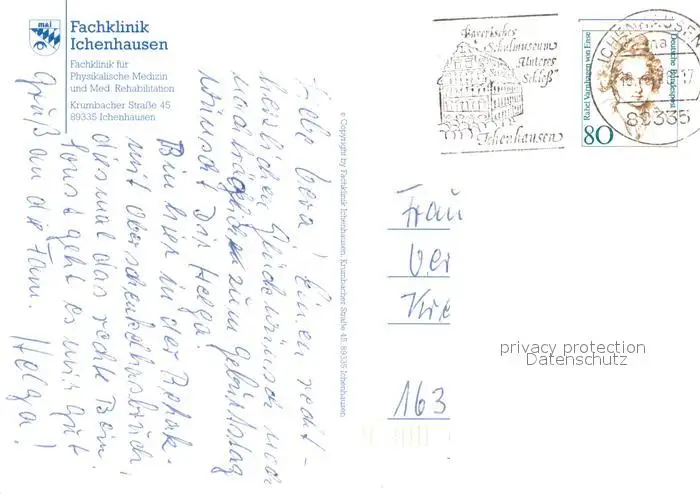 mai
Fachklinik
Ichenhausen
Fachklinik für
Physikalische Medizin
und Med. Rehabilitation
Krumbacher Straße 45
89335 Ichenhausen
Liebe Vera! Einen recht-
herzlichen Glückwunsch noch
nachträglich zum Geburtstag
wünscht Dir Helga.
Bin hier in der Rehak.
mit Oberschenkelhalsbruch,
diesmal das rechte Bein.
sonst geht es mir gut
Gruß an die Fam. Helga!
© Copyright by Fachklinik Ichenhausen, Krumbacher Straße 45, 89335 Ichenhausen
Bayerisches
Schulmuseum
"Unteres
Schloß"
Ichenhausen
ICHENHAUSEN
89335
Deutsche Bundespost
Rahel Varnhagen von Ense
80
Frau
Ver
Kre
163
privacy protection
Datenschutz